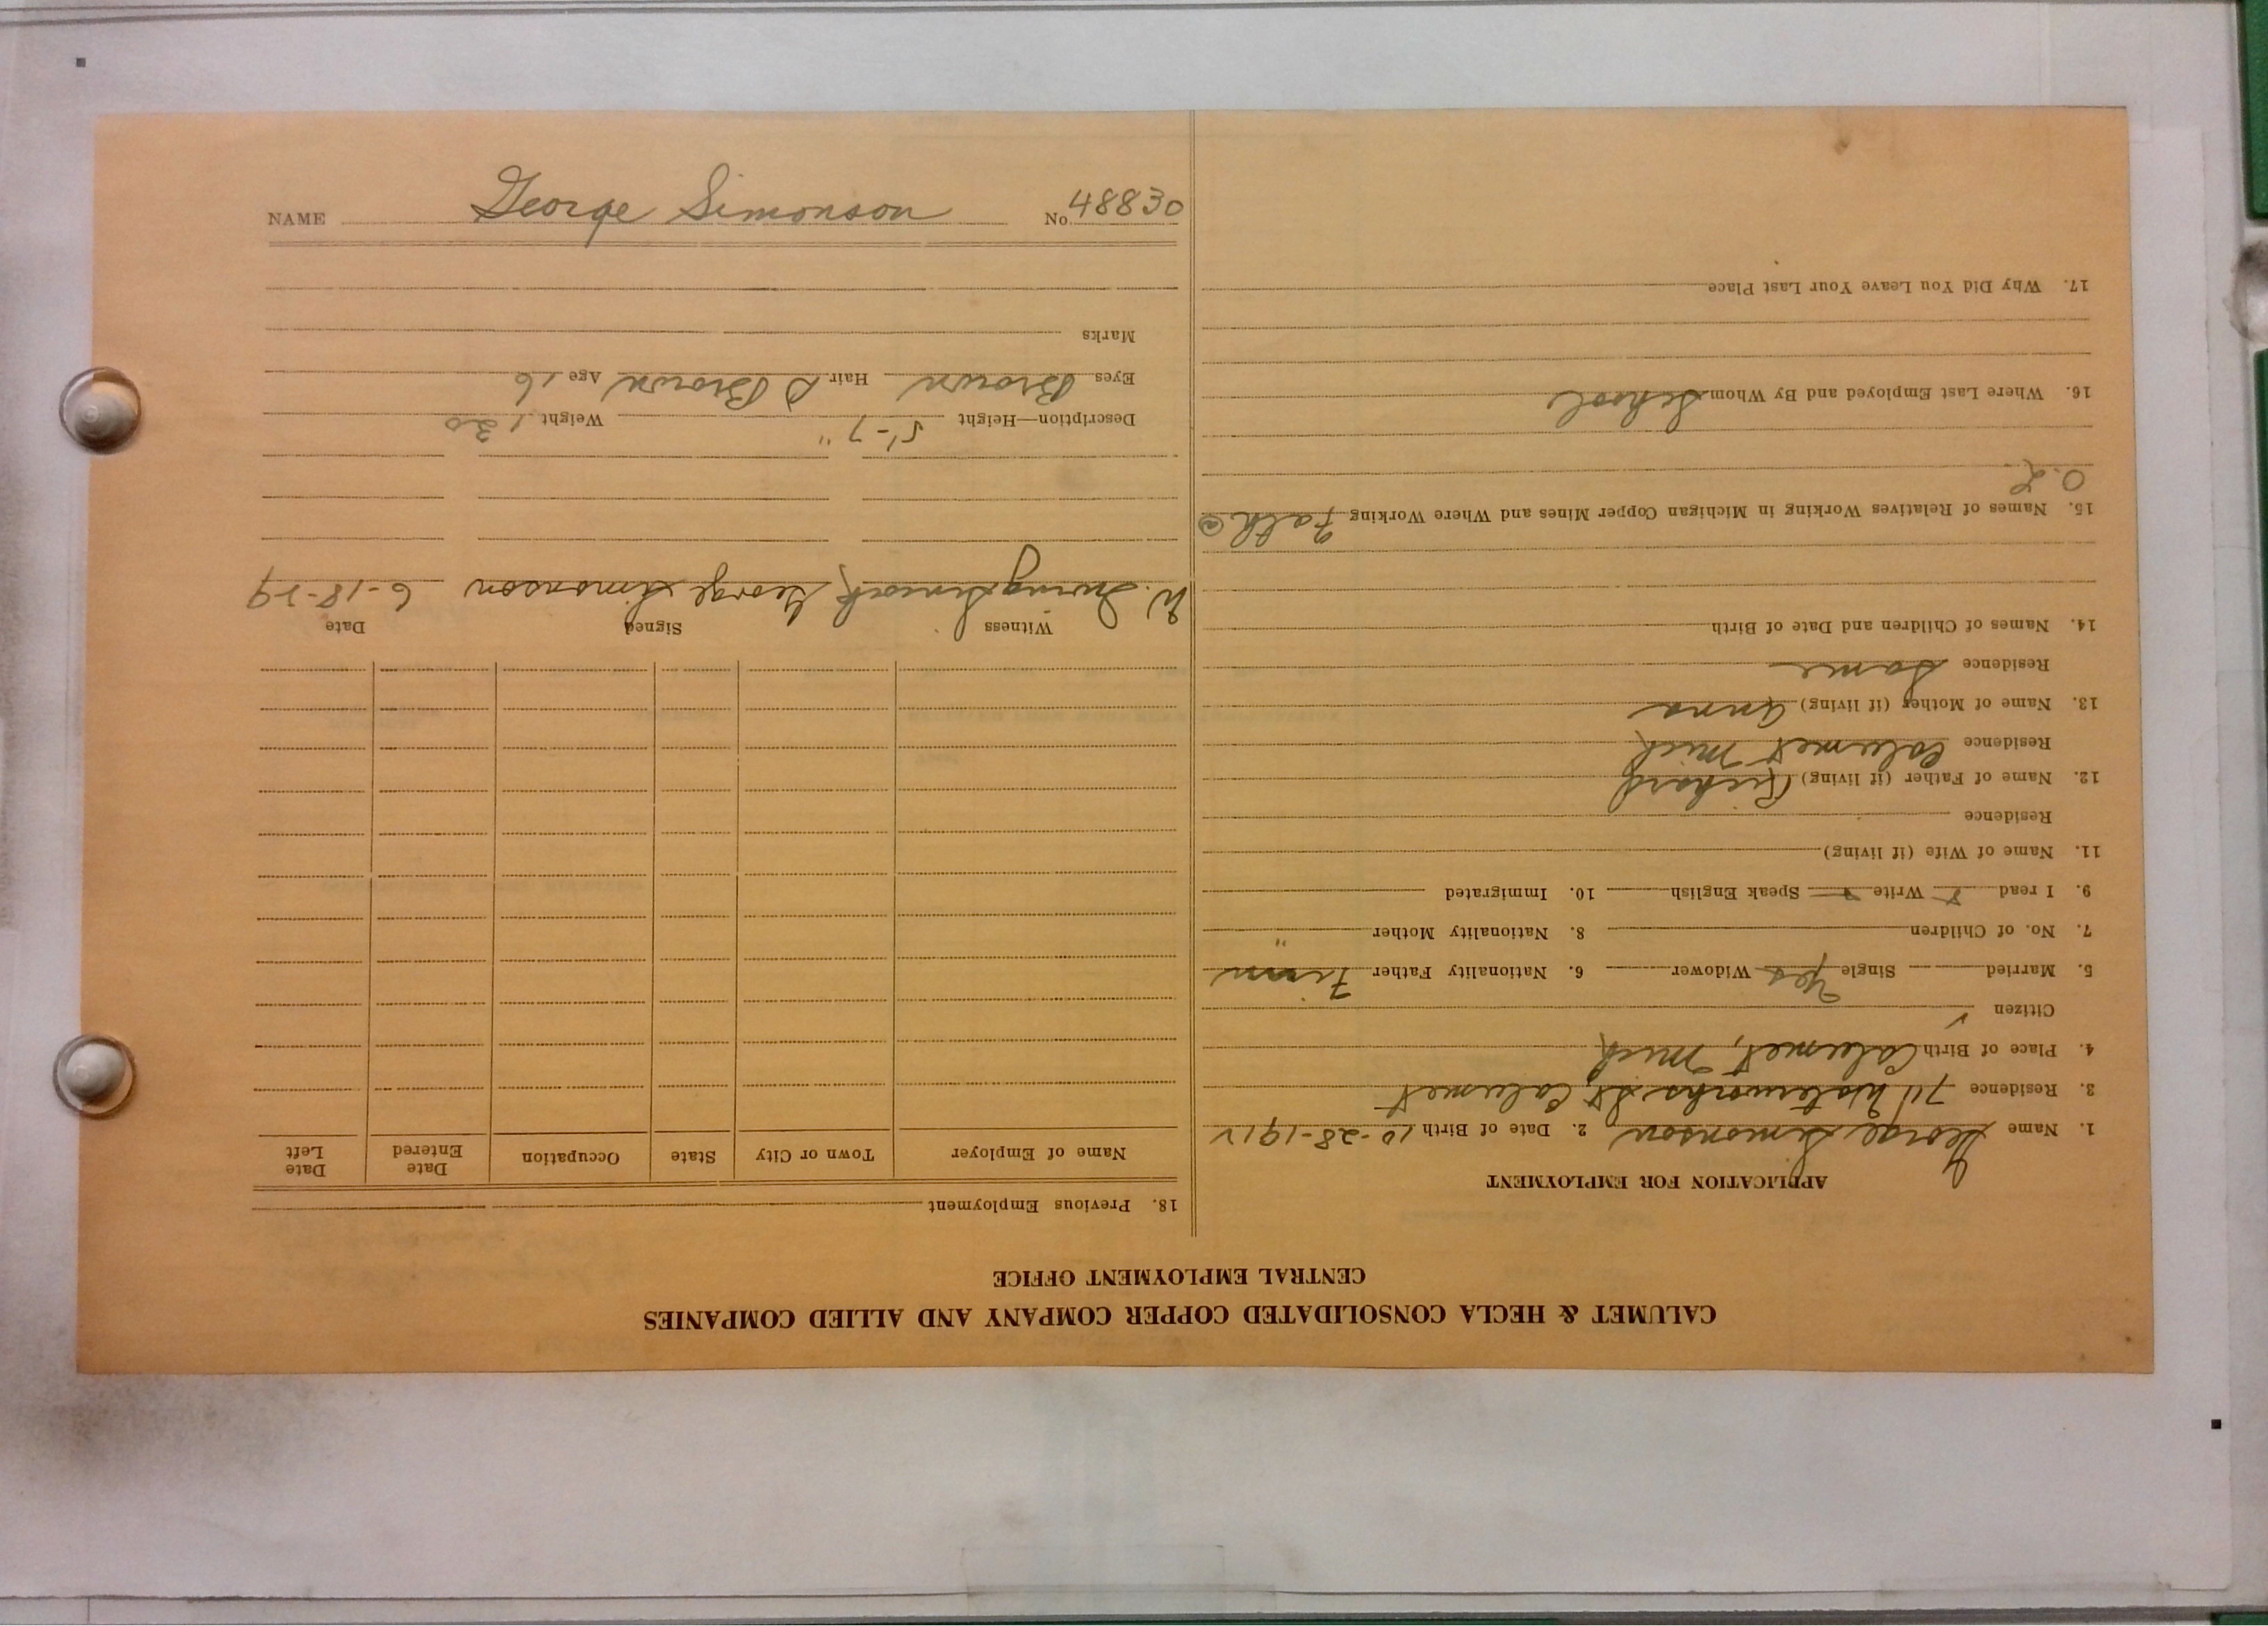 NAME George Simonson No. 48830
CALUMET & HECLA CONSOLIDATED COPPER COMPANY AND ALLIED COMPANIES
CENTRAL EMPLOYMENT OFFICE
APPLICATION FOR EMPLOYMENT
1. Name George Simonson 2. Date of Birth 10-28-1912
3. Residence 711 Waterworks St Calumet
4. Place of Birth Calumet, Mich
Citizen ✓
5. Married Single Yes Widower 6. Nationality Father Finn
7. No. of Children 8. Nationality Mother "
9. I read Write Speak English 10. Immigrated
11. Name of Wife (if living)
Residence
12. Name of Father (if living) Richard
Residence Calumet Mich
13. Name of Mother (if living) Anna
Residence Same
14. Names of Children and Date of Birth
15. Names of Relatives Working in Michigan Copper Mines and Where Working Fath
16. Where Last Employed and By Whom School
17. Why Did You Leave Your Last Place
18. Previous Employment
Name of Employer Town or City State Occupation Date Entered Date Left
Witness Signed Date
W. George Simonson 6-18-29
Description—Height 5'-7" Weight 130
Eyes Brown Hair D Brown Age 16
Marks